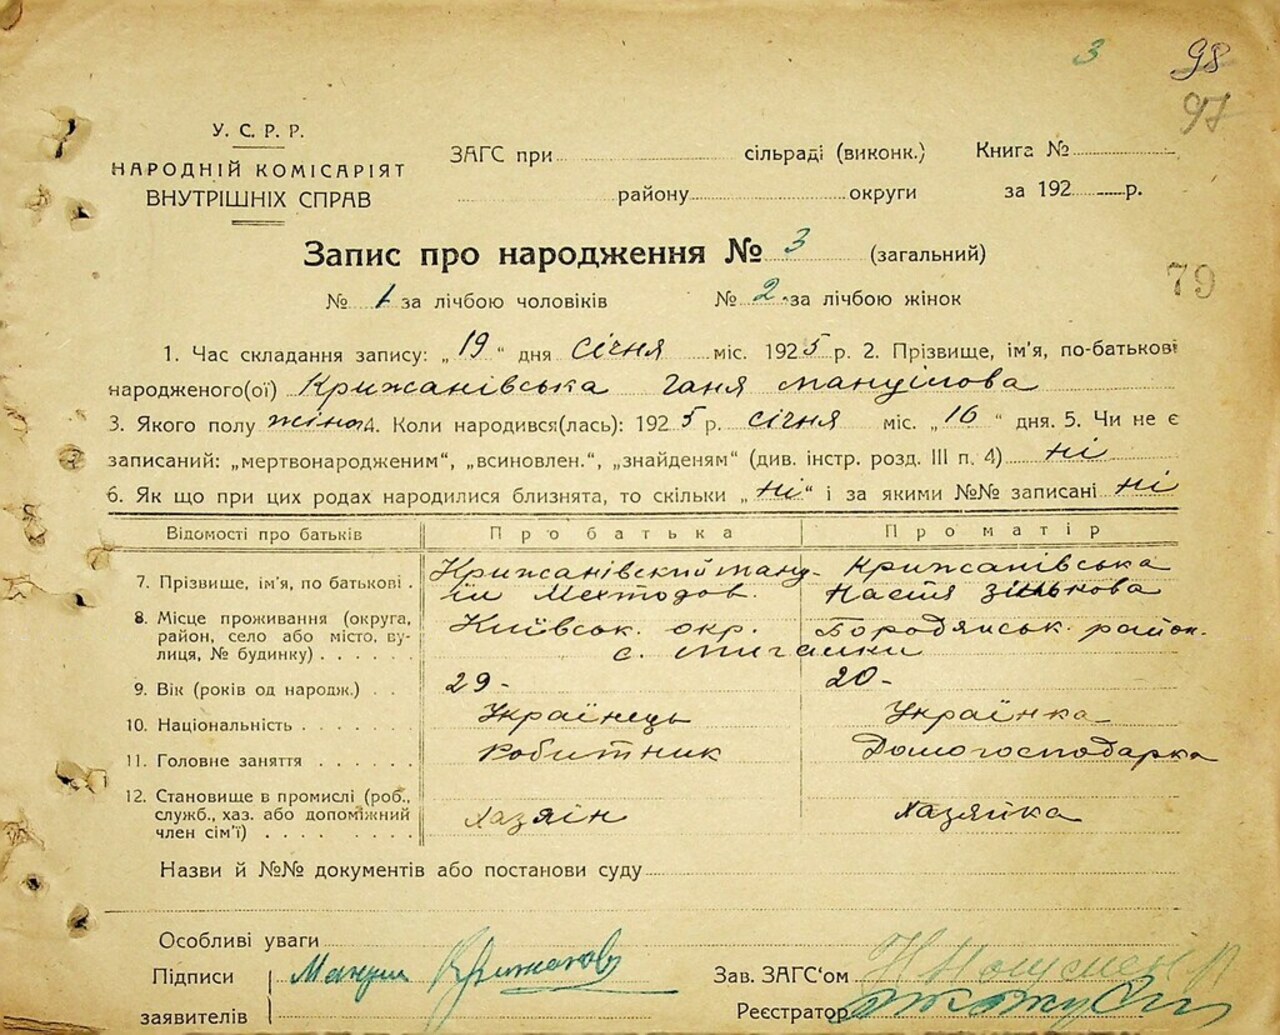 3 98
97
У. С. Р. Р.
НАРОДНІЙ КОМІСАРІЯТ
ВНУТРІШНІХ СПРАВ
ЗАГС при сільраді (виконк.) Книга №
району округи за 192 р.
Запис про народження № 3 (загальний)
79
№ 1 за лічбою чоловіків № 2 за лічбою жінок
1. Час складання запису: „19“ дня січня міс. 1925 р. 2. Прізвище, ім'я, по-батькові
народженого(ої) Крижанівська Ганя Мануілова
3. Якого полу жіноч. 4. Коли народився(лась): 1925 р. січня міс. „16“ дня. 5. Чи не є
записаний: „мертвонародженим“, „всиновлен.“, „знайденям“ (див. інстр. розд. III п. 4) ні
6. Як що при цих родах народилися близнята, то скільки „ні“ і за якими №№ записані ні
Відомості про батьків Про батька Про матір
7. Прізвище, ім'я, по батькові . Крижанівский Ману- Крижанівська
іл Мехтодов. Настя Зінькова
8. Місце проживання (округа, Київськ. окр. Бородянськ. район.
район, село або місто, ву- с. Мигалки
лиця, № будинку) . . . . . .
9. Вік (років од народж.) . . 29- 20-
10. Національність . . . . . . Українець Українка
11. Головне заняття . . . . . . Робитник Домогосподарка
12. Становище в промислі (роб.,
служб., хаз. або допоміжний Хазяін Хазяйка
член сім'ї) . . . . . . . .
Назви й №№ документів або постанови суду
Особливі уваги
Підписи Мануил Крижанов Зав. ЗАГС'ом
заявителів Реєстратор